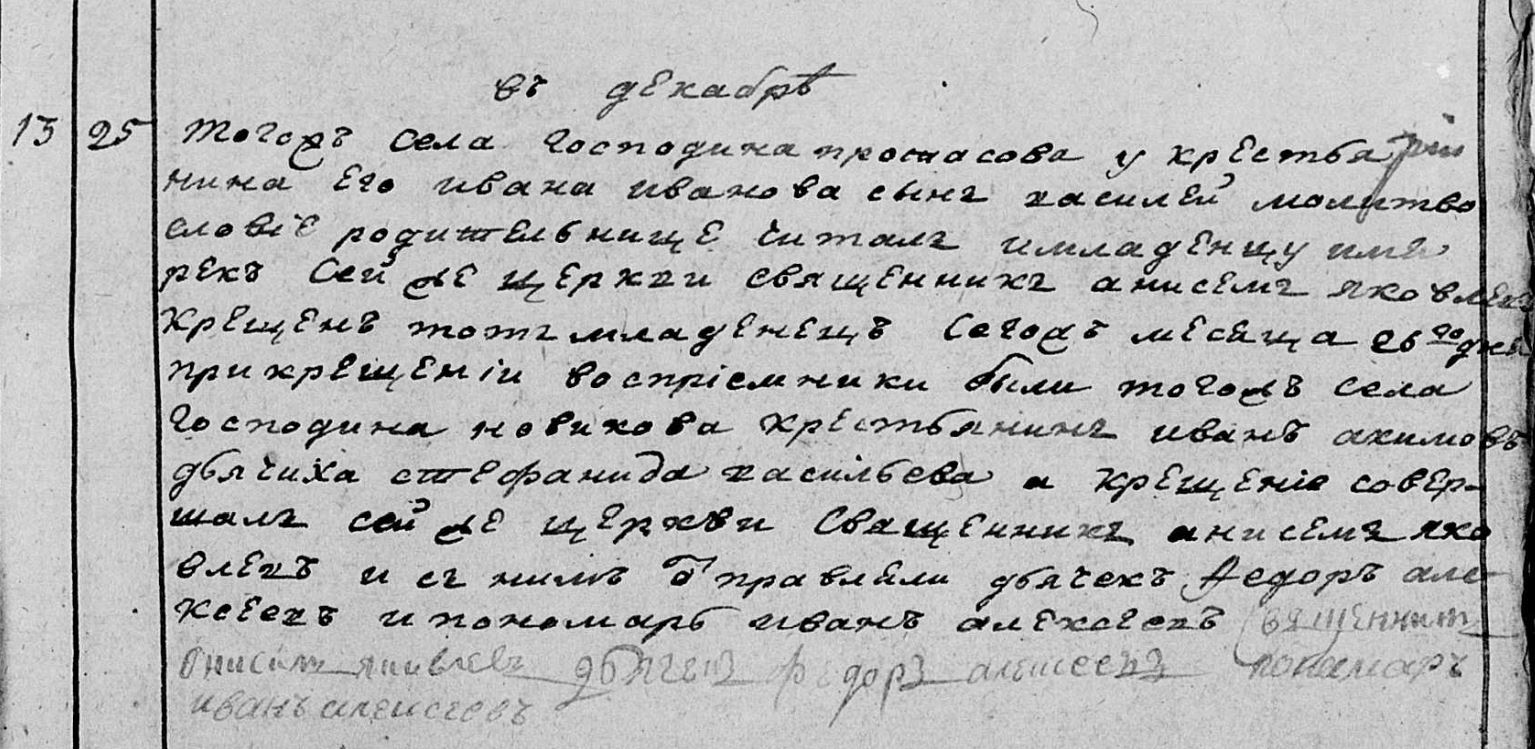 въ декабрѣ
13 25 тогожъ села господина протасова у крестья
нина его ивана иванова сынъ василей молитво
словіе родительнице читалъ имладенцу имя
рекъ сей же церкви священникъ анисемъ яковлевъ
крещенъ тотъ младенецъ сегожъ месяца 26 го дня
при крещеніи воспріемники были тогожъ села
господина новикова крестьянинъ иванъ акимовъ
дьячиха стефанида васильева а крещеніе совер-
шалъ сей же церкви священникъ анисемъ яко
влевъ и съ нимъ отправляли дьячекъ федоръ але
ксеевъ и пономарь иванъ алексеевъ священникъ
Онисимъ яковлевъ дьячекъ федоръ алексеевъ понамаръ
иванъ алексеевъ